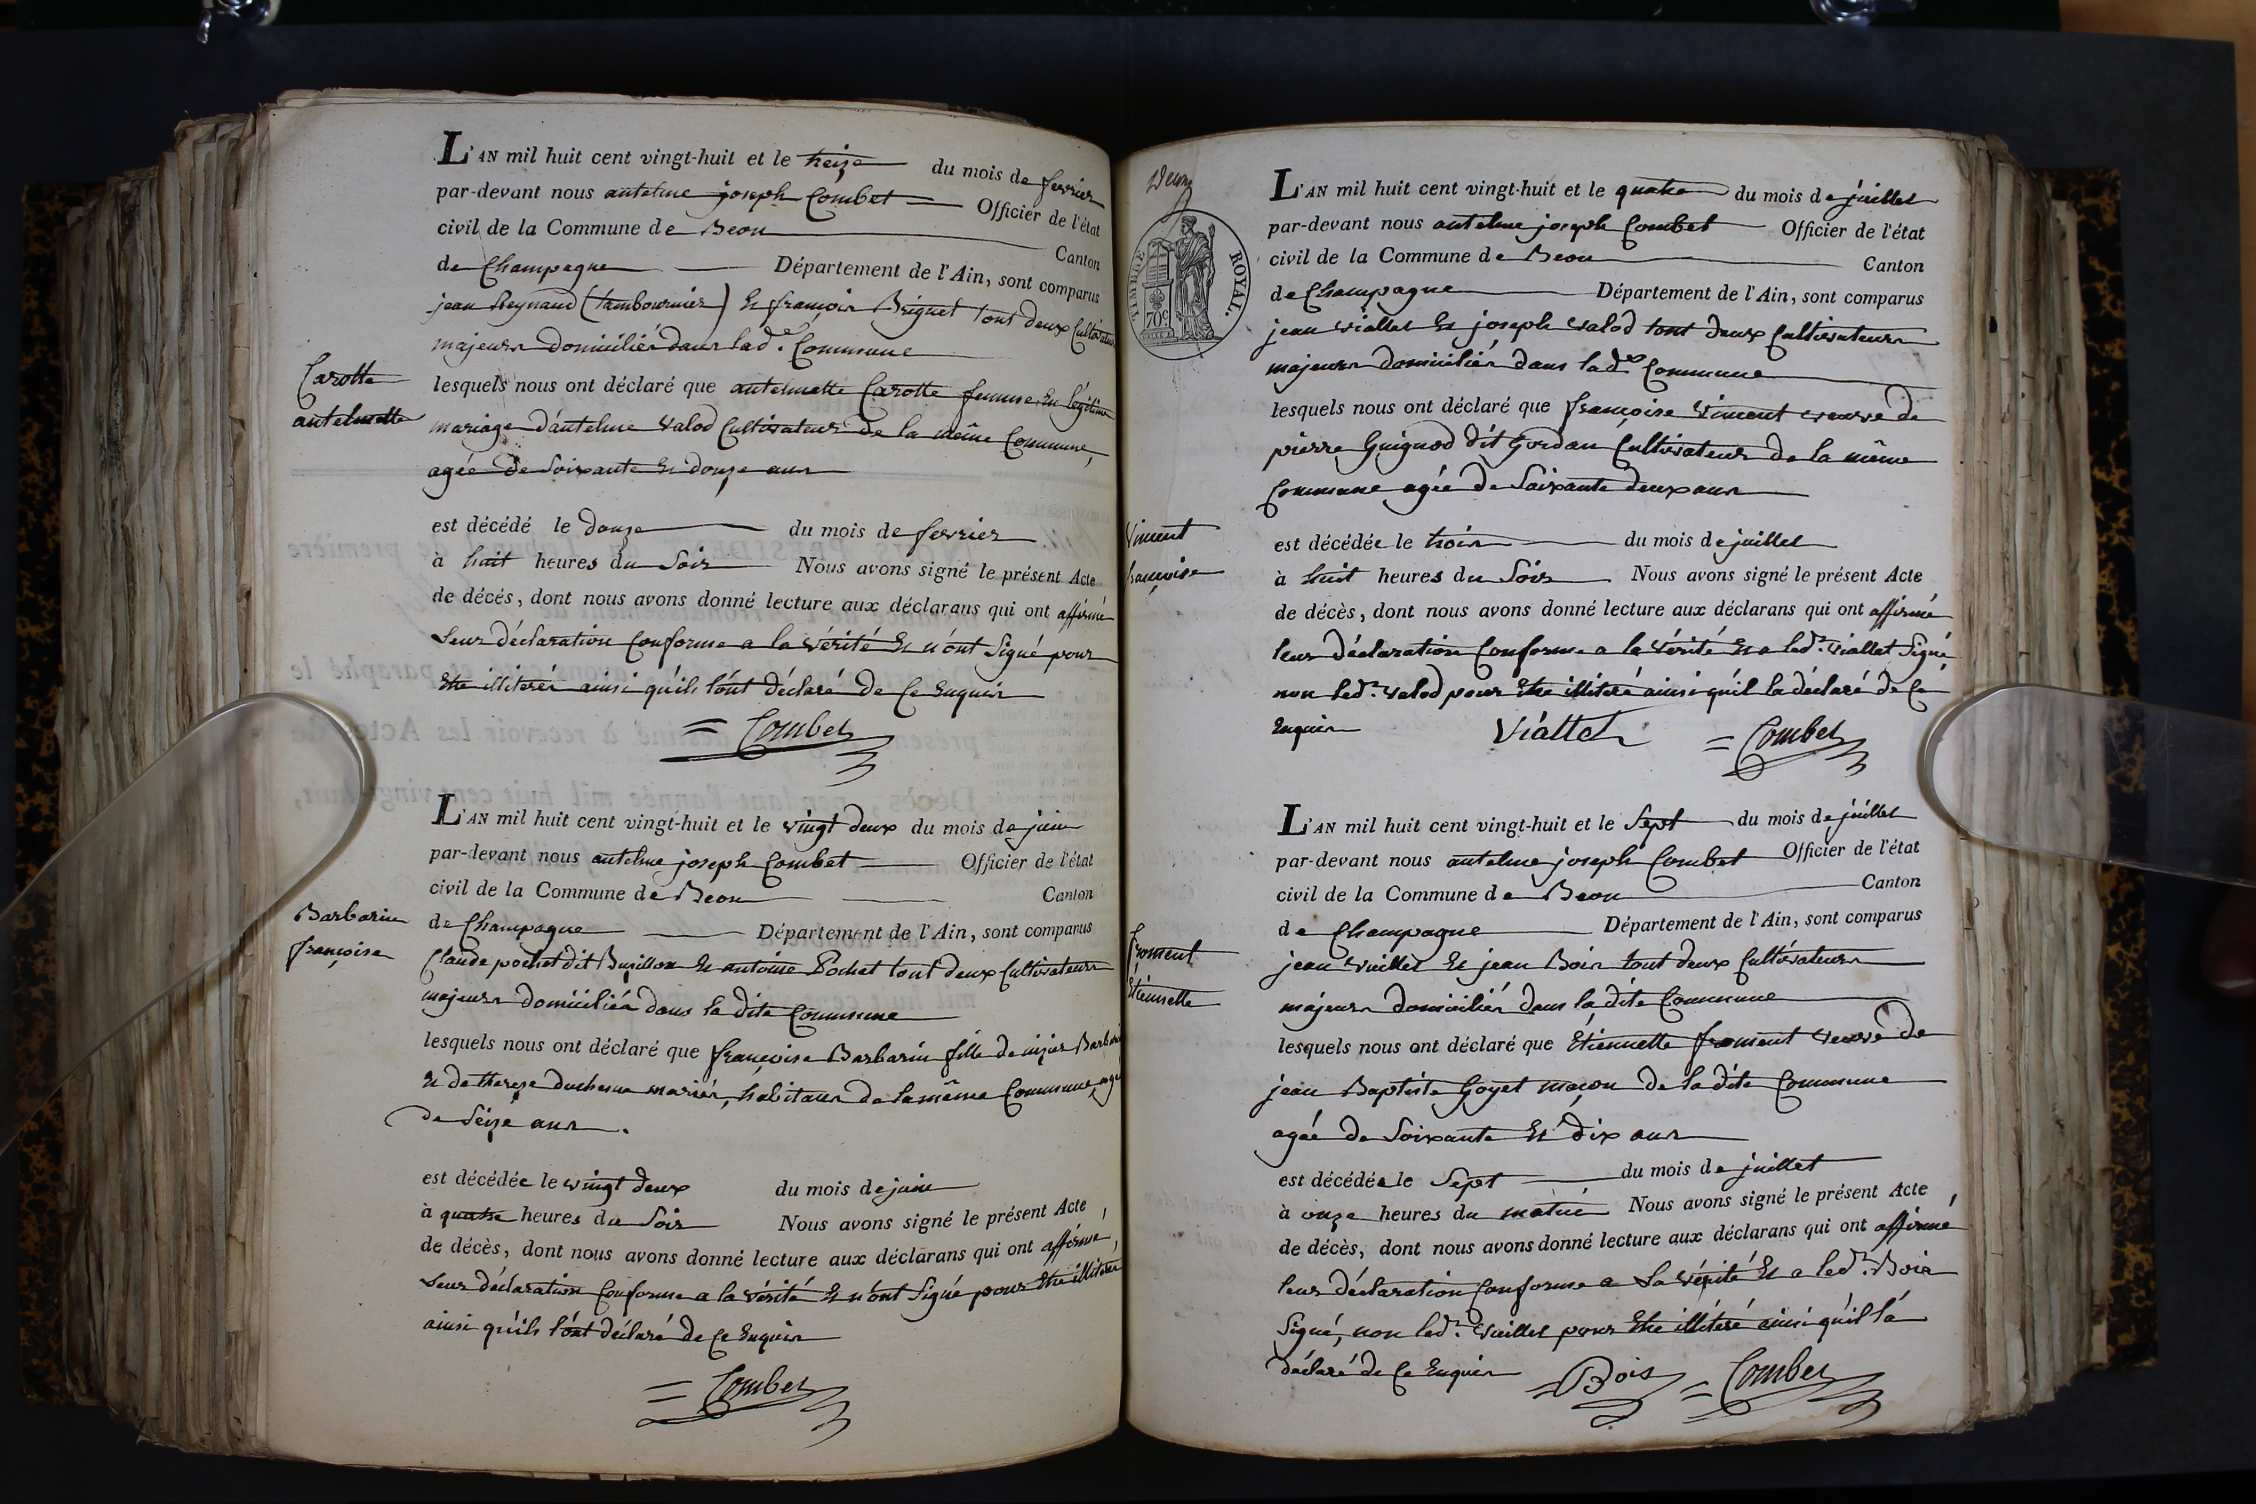 L'AN mil huit cent vingt-huit et le treize du mois de fevrier
par-devant nous antelme joseph Combet Officier de l'état
civil de la Commune de Beon Canton
de Champagne Département de l'Ain, sont comparus
jean Reynaud (tambournier) Et françois Briguet tout deux Cultivateurs
majeurs domiciliés dans lad.e Commune
Carotte
antelmette
lesquels nous ont déclaré que antelmette Carotte femme En légitime
mariage d'antelme Valod Cultivateur de la même Commune,
agée de Soixante Et douze ans
est décédé le douze du mois de fevrier
à huit heures du Soir Nous avons signé le présent Acte
de décés, dont nous avons donné lecture aux déclarans qui ont affirmé
Leur déclaration Conforme a la vérité Et n'ont Signé pour
Etre illiterés ainsi qu'ils l'ont déclaré de Ce Enquis
= Combet
L'AN mil huit cent vingt-huit et le vingt deux du mois de juin
par-devant nous antelme joseph Combet Officier de l'état
civil de la Commune de Beon Canton
Barbarin
françoise
de Champagne Département de l'Ain, sont comparus
Claude pochet dit Burillon Et antoine Pochet tout deux Cultivateurs
majeurs domiciliés dans la dite Commune
lesquels nous ont déclaré que françoise Barbarin fille de Barbarin
Et de thereze duchesne mariés, habitans de la même Commune, agée
de Seize ans.
est décédée le vingt deux du mois de juin
à quatre heures du Soir Nous avons signé le présent Acte
de décès, dont nous avons donné lecture aux déclarans qui ont affirmé,
Leur déclaration Conforme a la vérité Et n'ont Signé pour Etre illiterés
ainsi qu'ils l'ont déclaré de Ce Enquis
= Combet
TIMBRE ROYAL.
70c
L'AN mil huit cent vingt-huit et le quatre du mois de juillet
par-devant nous antelme joseph Combet Officier de l'état
civil de la Commune de Beon Canton
de Champagne Département de l'Ain, sont comparus
jean viallet Et joseph valod tout deux Cultivateurs
majeurs domiciliés dans lad.e Commune
lesquels nous ont déclaré que françoise Viment veuve de
pierre Guignod dit Gordan Cultivateur de la même
Commune agée de Soixante deux ans
Viment
françoise
est décédée le trois du mois de juillet
à huit heures du Soir Nous avons signé le présent Acte
de décès, dont nous avons donné lecture aux déclarans qui ont affirmé
leur déclaration Conforme a la vérité Et a led.t viallet Signé,
non led.t valod pour Etre illiteré ainsi qu'il la déclaré de Ce
Enquis Viallet = Combet
L'AN mil huit cent vingt-huit et le Sept du mois de juillet
par-devant nous antelme joseph Combet Officier de l'état
civil de la Commune de Beon Canton
de Champagne Département de l'Ain, sont comparus
froment
Etiennette
jean vuillet Et jean Bois tout deux Cultivateurs
majeurs domiciliés dans la dite Commune
lesquels nous ont déclaré que Etiennette froment veuve de
jean Baptiste Goyet maçon de la dite Commune
agée de Soixante Et dix ans
est décédée le Sept du mois de juillet
à onze heures du matin Nous avons signé le présent Acte
de décès, dont nous avons donné lecture aux déclarans qui ont affirmé
leur déclaration Conforme a La vérité Et a led.t Bois
Signé, non led.t vuillet pour Etre illiteré ainsi qu'il l'a
déclaré de Ce Enquis = Bois = Combet